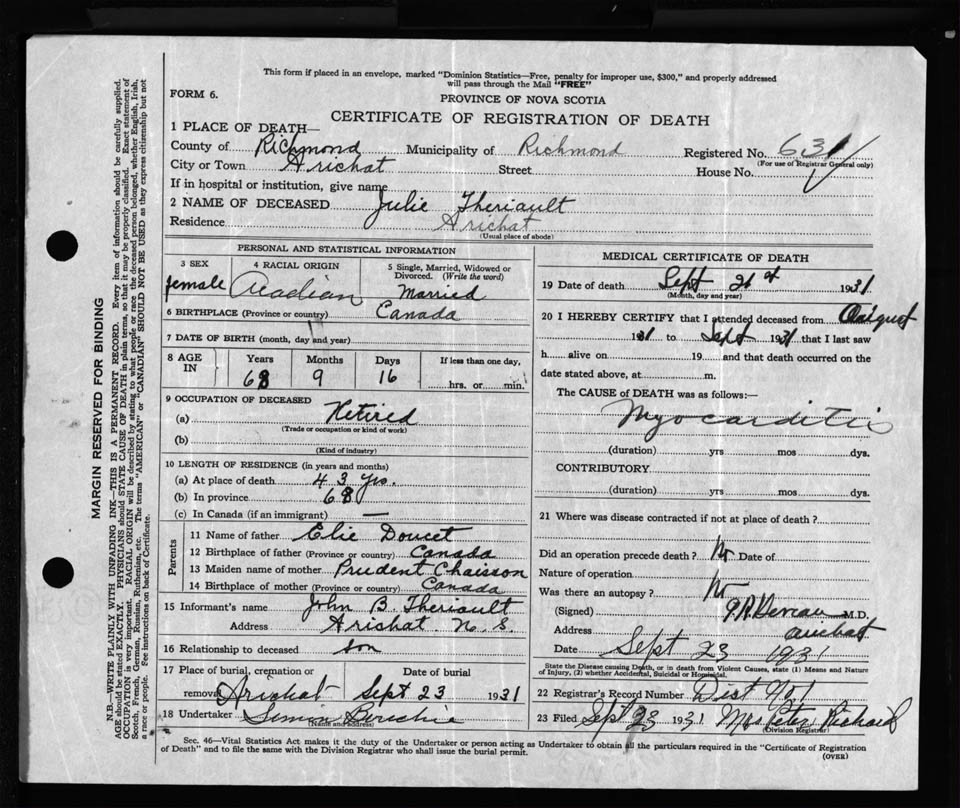 This form if placed in an envelope, marked "Dominion Statistics—Free, penalty for improper use, $300," and properly addressed
will pass through the Mail "FREE"
FORM 6.
PROVINCE OF NOVA SCOTIA
CERTIFICATE OF REGISTRATION OF DEATH
1 PLACE OF DEATH—
County of Richmond Municipality of Richmond Registered No. 631
(For use of Registrar General only)
City or Town Arichat Street House No.
If in hospital or institution, give name
2 NAME OF DECEASED Julie Theriault
Residence Arichat
(Usual place of abode)
PERSONAL AND STATISTICAL INFORMATION
3 SEX 4 RACIAL ORIGIN 5 Single, Married, Widowed or
Divorced. (Write the word)
female Acadian Married
6 BIRTHPLACE (Province or country) Canada
7 DATE OF BIRTH (month, day and year)
8 AGE IN Years Months Days If less than one day,
68 9 16 hrs. or min.
9 OCCUPATION OF DECEASED
(a) Retired
(Trade or occupation or kind of work)
(b)
(Kind of industry)
10 LENGTH OF RESIDENCE (in years and months)
(a) At place of death 43 yrs.
(b) In province 68
(c) In Canada (if an immigrant) —
Parents
11 Name of father Elie Doucet
12 Birthplace of father (Province or country) Canada
13 Maiden name of mother Prudent Chaisson
14 Birthplace of mother (Province or country) Canada
15 Informant's name John B. Theriault
Address Arichat N. S.
16 Relationship to deceased son
17 Place of burial, cremation or Date of burial
removal Arichat Sept 23 1931
18 Undertaker
(Name and address)
MEDICAL CERTIFICATE OF DEATH
19 Date of death Sept 21st 1931
(Month, day and year)
20 I HEREBY CERTIFY that I attended deceased from August
1931 to Sept 1931 that I last saw
h alive on 19 and that death occurred on the
date stated above, at m.
The CAUSE of DEATH was as follows:—
Myocarditis
(duration) yrs mos dys.
CONTRIBUTORY
(duration) yrs mos dys.
21 Where was disease contracted if not at place of death?
Did an operation precede death? No Date of
Nature of operation
Was there an autopsy? No
(Signed) M.D.
Address Arichat
Date Sept 23 1931
State the Disease causing Death, or in death from Violent Causes, state (1) Means and Nature
of Injury, (2) whether Accidental, Suicidal or Homicidal.
22 Registrar's Record Number Dist No 1
23 Filed Sept 23 1931 Mrs Peter Richard
(Division Registrar)
Sec. 46—Vital Statistics Act makes it the duty of the Undertaker or person acting as Undertaker to obtain all the particulars required in the "Certificate of Registration
of Death" and to file the same with the Division Registrar who shall issue the burial permit.
(OVER)
MARGIN RESERVED FOR BINDING
N.B.—WRITE PLAINLY WITH UNFADING INK—THIS IS A PERMANENT RECORD. Every item of information should be carefully supplied.
AGE should be stated EXACTLY. PHYSICIANS should STATE CAUSE OF DEATH in plain terms, so that it may be properly classified. Exact statement of
OCCUPATION is very important. RACIAL ORIGIN will be described by stating to what people or race the deceased person belonged, whether English, Irish,
Scotch, French, German, Russian, Ruthenian, etc. The terms "AMERICAN" or "CANADIAN" SHOULD NOT BE USED as they express citizenship but not
a race or people. See instructions on back of Certificate.